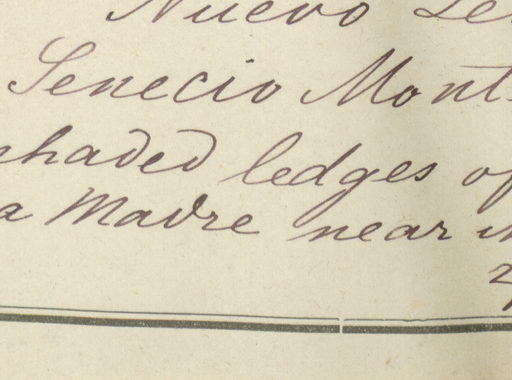 Nuevo Le
Senecio Mont
shaded ledges of
a Madre near